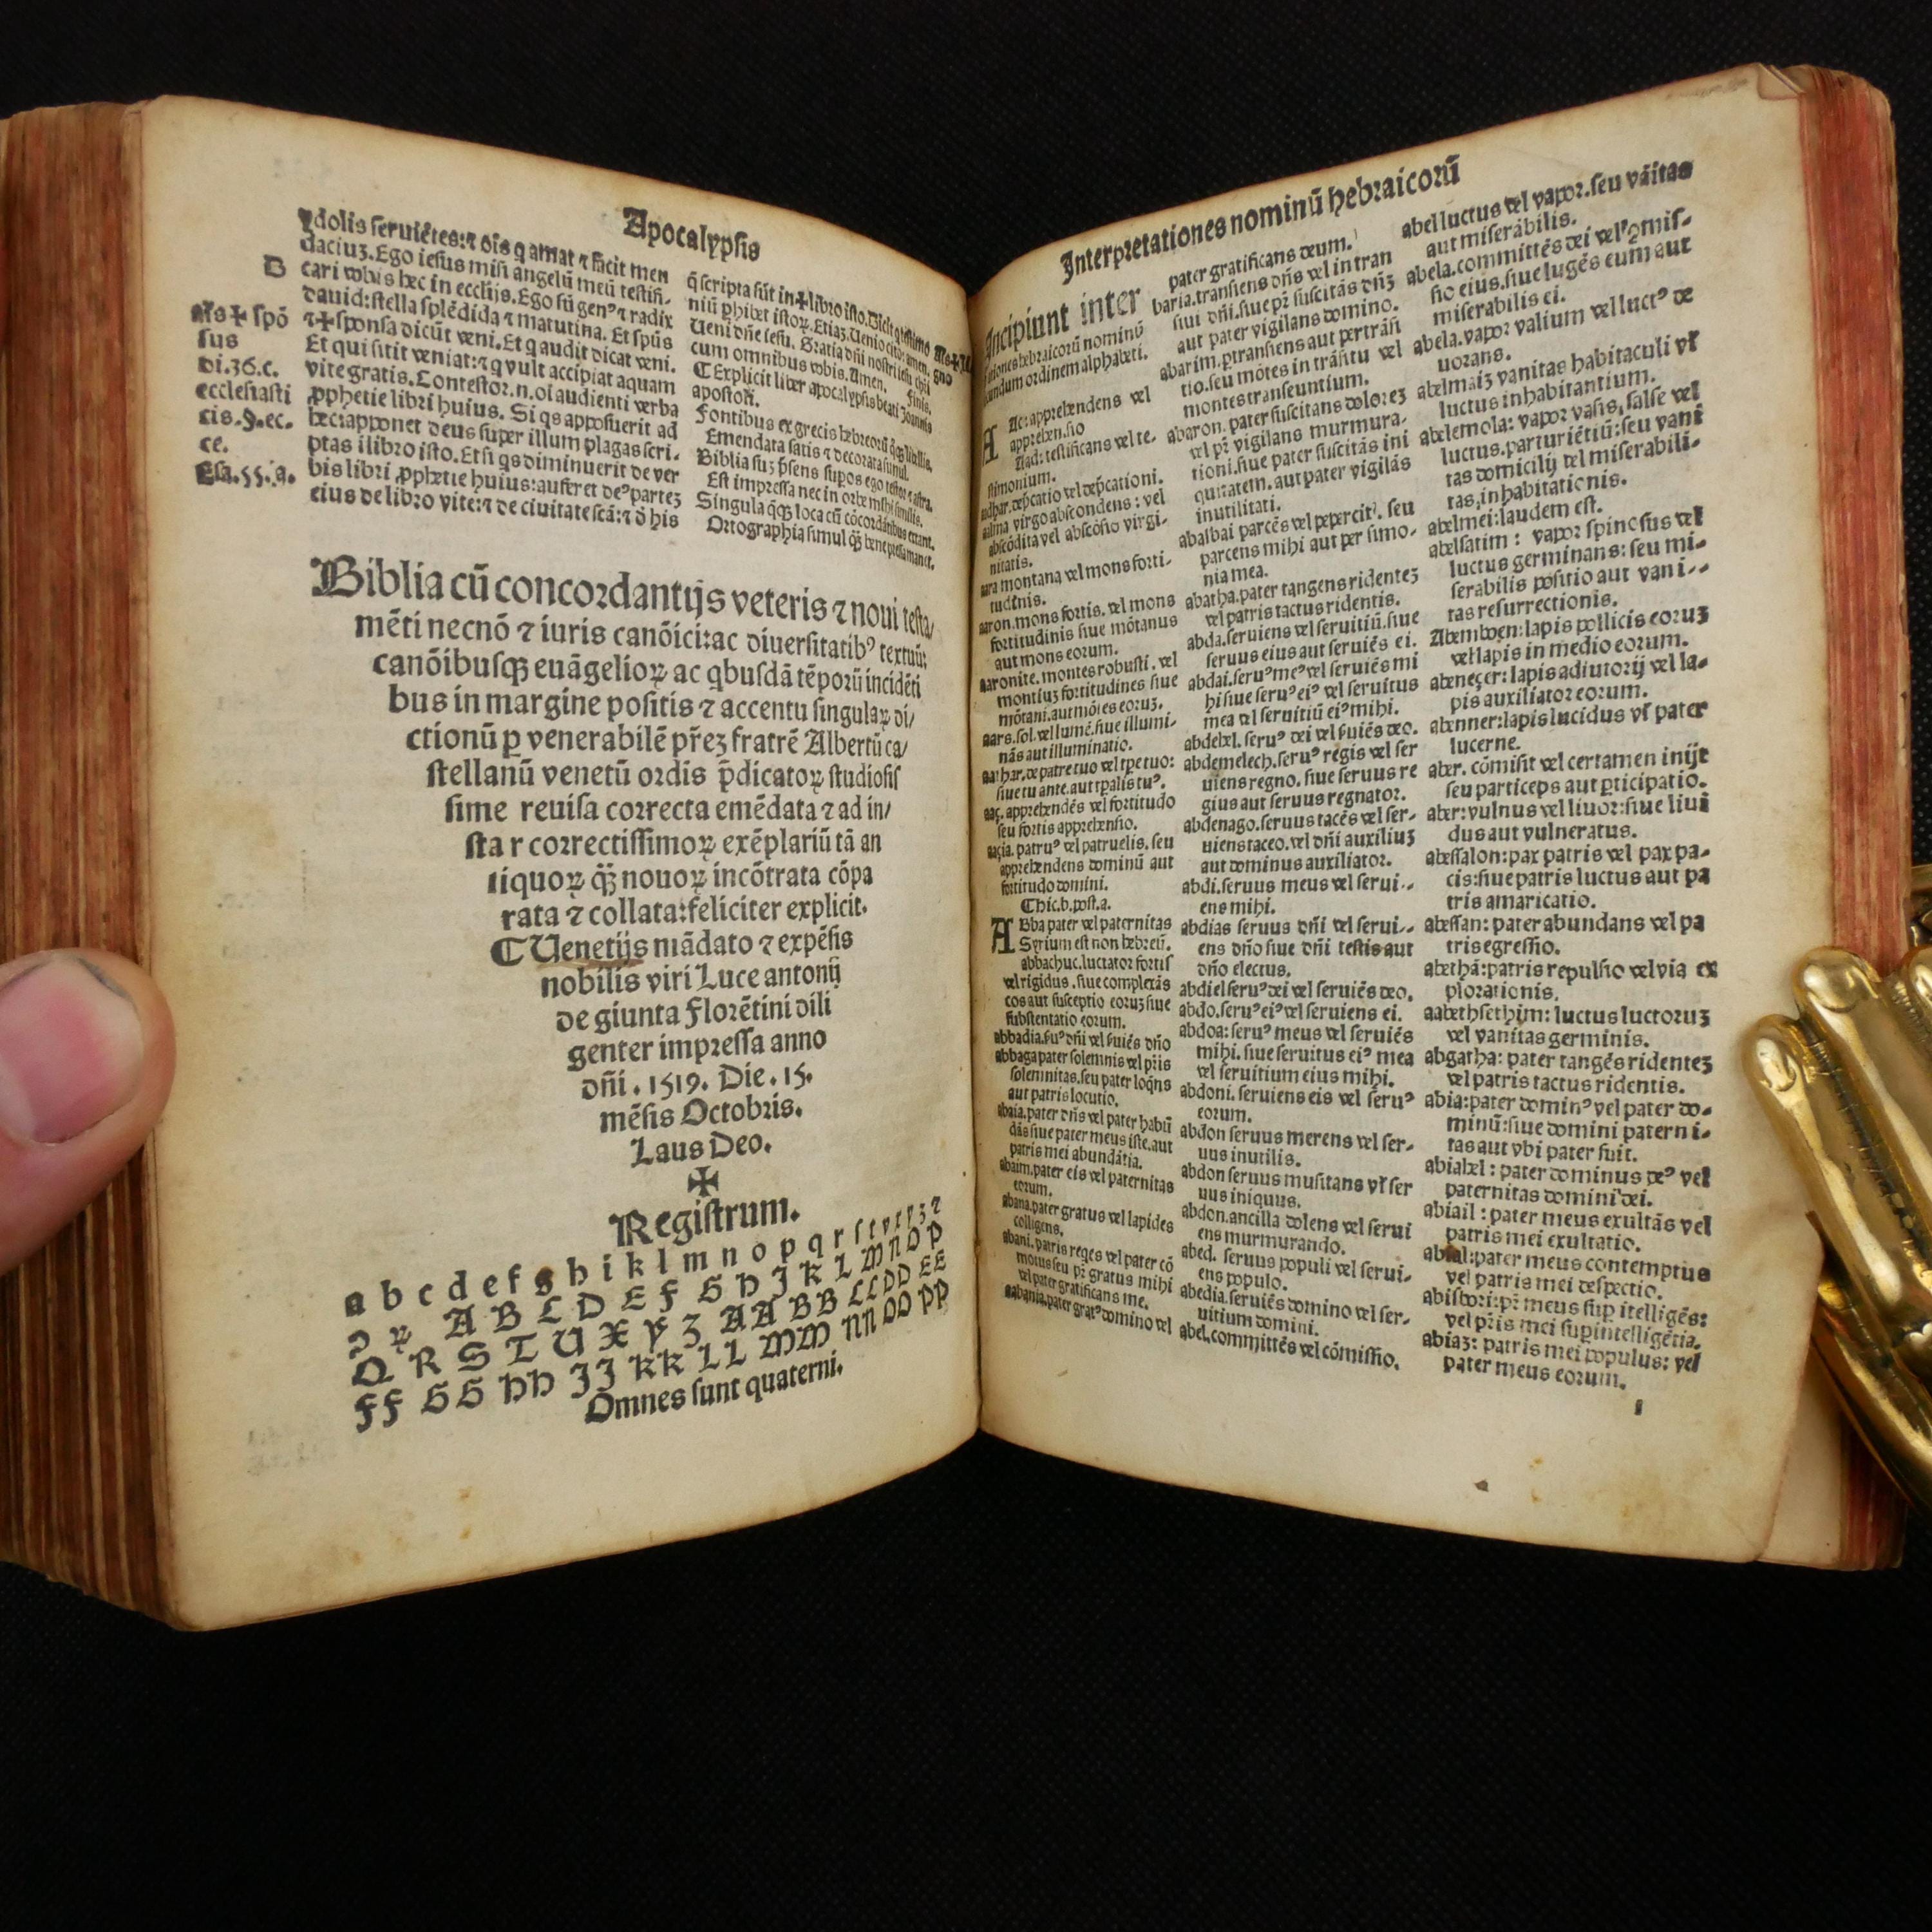 Apocalypsis
ydolis seruiētes:⁊ oīs q amat ⁊ facit men
daciuꝫ. Ego iesus misi angelū meū testifi-
B
cari vobis hec in ecclijs. Ego sū genꝰ ⁊ radix
dauid:stella splēdida ⁊ matutina. Et spūs
als ✝ spō
sus
⁊✝sponsa dicūt veni. Et q audit dicat veni.
Et qui sitit veniat:⁊ q vult accipiat aquam
di.36.c.
vite gratis. Contestor.n.oī audienti verba
ecclesiasti
cis.§.ec.
ce.
ꝓphetie libri huius. Si qs apposuerit ad
hec:apponet deus super illum plagas scri-
ptas ī libro isto. Et si qs diminuerit de ver
Esa.55.a.
bis libri ꝓphetie huius:auferet deꝰ parteꝫ
eius de libro vite:⁊ de ciuitate scā:⁊ d̄ his
q̄ scripta sūt in✝libro isto. Dicit q
niū ꝑhibet istoꝝ. Etiaꝫ. Uenio cito: amen.
Ueni dn̄e iesu. Gratia dn̄i nostri iesu chr̄i
cum omnibus vobis. Amen.
Finis.
¶ Explicit liber apocalypsis beati Joannis
apostoli.
Fontibus ex grecis hebreorū q̄qꝫ libris,
Emendata satis ⁊ decorata simul.
Biblia suꝫ p̄sens supos ego testor ⁊ astra.
Est impressa nec in orbe mihi similis.
Singula q̄qꝫ loca cū cōcordātibus extant.
Ortographia simul q̄ꝫ bene pressa manet.
Biblia cū concordantijs veteris ⁊ noui testa/
mēti necnō ⁊ iuris canōici:ac diuersitatibꝰ textuū:
canōibusqꝫ euāgelioꝝ ac qbusdā tēporū incidēti
bus in margine positis ⁊ accentu singulaꝝ di/
ctionū ꝑ venerabilē pr̄eꝫ fratrē Albertū ca/
stellanū venetū ordis p̄dicatoꝝ studiosis
sime reuisa correcta emēdata ⁊ ad in/
sta r correctissimoꝝ exēplariū tā an
tiquoꝝ q̄ꝫ nouoꝝ incōtrata cōpa
rata ⁊ collata:feliciter explicit.
¶ Uenetijs mādato ⁊ expēsis
nobilis viri Luce antonij
de giunta Florētini dili
genter impressa anno
dn̄i . 1519. Die . 15.
mēsis Octobris.
Laus Deo.
✠
Registrum.
a b c d e f g h i k l m n o p q r s t v x y z ⁊
ꝯ ꝝ A B C D E F G H J K L M N O P
Q R S T U X Y Z AA BB CC DD EE
FF GG HH JJ KK LL MM NN OO PP
Omnes sunt quaterni.
Interpretationes nominū hebraicorū
Incipiunt inter
tiones hebraicorū nominū
cundum ordinem alphabeti.
A Ac: apprehendens vel
apprehensio
Aad: testificans vel te-
stimonium.
adhar. dep̄catio vel dep̄cationi.
aalma virgo abscondens: vel
abscōdita vel abscōsio virgi-
nitatis.
aara montana vel mons forti-
tudinis.
aaron. mons fortis. vel mons
fortitudinis siue mōtanus
aut mons eorum.
aaronite. montes robusti. vel
montiuꝫ fortitudines siue
mōtani. aut mōtes eoruꝫ.
aars. sol. vel lumē. siue illumi-
nās aut illuminatio.
siue tu ante. aut
aaç. apprehendēs vel fortitudo
seu fortis apprehensio.
aaçia. patruꝰ vel patruelis. seu
apprehendens dominū aut
fortitudo domini.
Chic.b.post.a.
A Bba pater vel paternitas
Syrium est non hebreū.
abbachuc. luctator fortis
vel rigidus. siue complexās
eos aut susceptio eoruꝫ siue
substentatio eorum.
abbadia. ẜuꝰ dn̄i vel ẜuiēs dn̄o
abbaga pater solemnis vel pr̄is
solemnitas. seu pater loq̄ns
aut patris locutio.
abaia. pater dn̄s vel pater habū
dās siue pater meus iste. aut
patris mei abundātia.
abaim. pater eis vel paternitas
eorum.
abana. pater gratus vel lapides
colligens.
abani. patris reges vel pater cō
motus seu pr̄ gratus mihi
vel pater gratificans me.
aabania. pater gratꝰ domino vel
pater gratificans deum.
abaria. transiens dn̄s vel in tran
situi dn̄i. siue pr̄ suscitās dn̄ꝫ
aut pater vigilans domino.
abarim. ꝑtransiens aut pertrāsi
tio. seu mōtes in trāsitu vel
montes transeuntium.
abaron. pater suscitans doloreꝫ
vel pr̄ vigilans murmura-
tioni. siue pater suscitās ini
quitatem. aut pater vigilās
inutilitati.
abasbai parcēs vel pepercit. seu
parcens mihi aut per simo-
nia mea.
abatha. pater tangens ridenteꝫ
vel patris tactus ridentis.
abda. seruiens vel seruitiū. siue
seruus eius aut seruiēs ei.
abdai. seruꝰ meꝰ vel seruiēs mi
hi siue seruꝰ eiꝰ vel seruitus
mea vel seruitiū eiꝰ mihi.
abdebel. seruꝰ dei vel ẜuiēs deo.
abdemelech. seruꝰ regis vel ser
uiens regno. siue seruus re
gius aut seruus regnator.
abdenago. seruus tacēs vel ser-
uiens taceo. vel dn̄i auxiliuꝫ
aut dominus auxiliator.
abdi. seruus meus vel serui-
ens mihi.
abdias seruus dn̄i vel serui-
ens dn̄o siue dn̄i testis aut
dn̄o electus.
abdiel seruꝰ dei vel seruiēs deo.
abdo. seruꝰ eiꝰ vel seruiens ei.
abdoa: seruꝰ meus vel seruiēs
mihi. siue seruitus eiꝰ mea
vel seruitium eius mihi.
abdoni. seruiens eis vel seruꝰ
eorum.
abdon seruus merens vel ser-
uus inutilis.
abdon seruus musitans vl̄ ser
uus iniquus.
abdon. ancilla dolens vel serui
ens murmurando.
abed. seruus populi vel serui-
ens populo.
abedia. seruiēs domino vel ser-
uitium domini.
abel. committēs vel cōmissio.
abel luctus vel vapor. seu vāitas
aut miserabilis.
abela. committēs dei vel ꝯmis-
sio eius. siue lugēs eum aut
miserabilis ei.
abela. vapor valium vel luctꝰ de
uorans.
abelmaiꝫ vanitas habitaculi vl̄
luctus inhabitantium.
abelemola: vapor vasis, salse vel
luctus. parturiētiū: seu vani
tas domicilij vel miserabili-
tas, inhabitationis.
abelmei: laudem est.
abelsatim : vapor spinosus vel
luctus germinans: seu mi-
serabilis positio aut vani-
tas resurrectionis.
Abemboen: lapis pollicis eoruꝫ
vel lapis in medio eorum.
abeneçer: lapis adiutorij vel la-
pis auxiliator eorum.
abenner: lapis lucidus vl̄ pater
lucerne.
aber. cōmisit vel certamen inijt
seu particeps aut ꝑticipatio.
aber: vulnus vel liuor: siue liui
dus aut vulneratus.
abessalon: pax patris vel pax pa-
cis: siue patris luctus aut pa
tris amaricatio.
abessan: pater abundans vel pa
tris egressio.
abethā: patris repulsio vel via ex
plorationis.
aabethsethim: luctus luctoruꝫ
vel vanitas germinis.
abgatha: pater tangēs ridenteꝫ
vel patris tactus ridentis.
abia: pater dominꝰ vel pater do-
minū: siue domini paterni-
tas aut vbi pater fuit.
abiabel : pater dominus deꝰ vel
paternitas domini dei.
abiail : pater meus exultās vel
patris mei exultatio.
abial: pater meus contemptus
vel patris mei despectio.
abisdori: pr̄ meus suꝑ ītelligēs:
vel pr̄is mei suꝑintelligētia.
abiaꝫ: patris mei populus: vel
pater meus eorum.
1